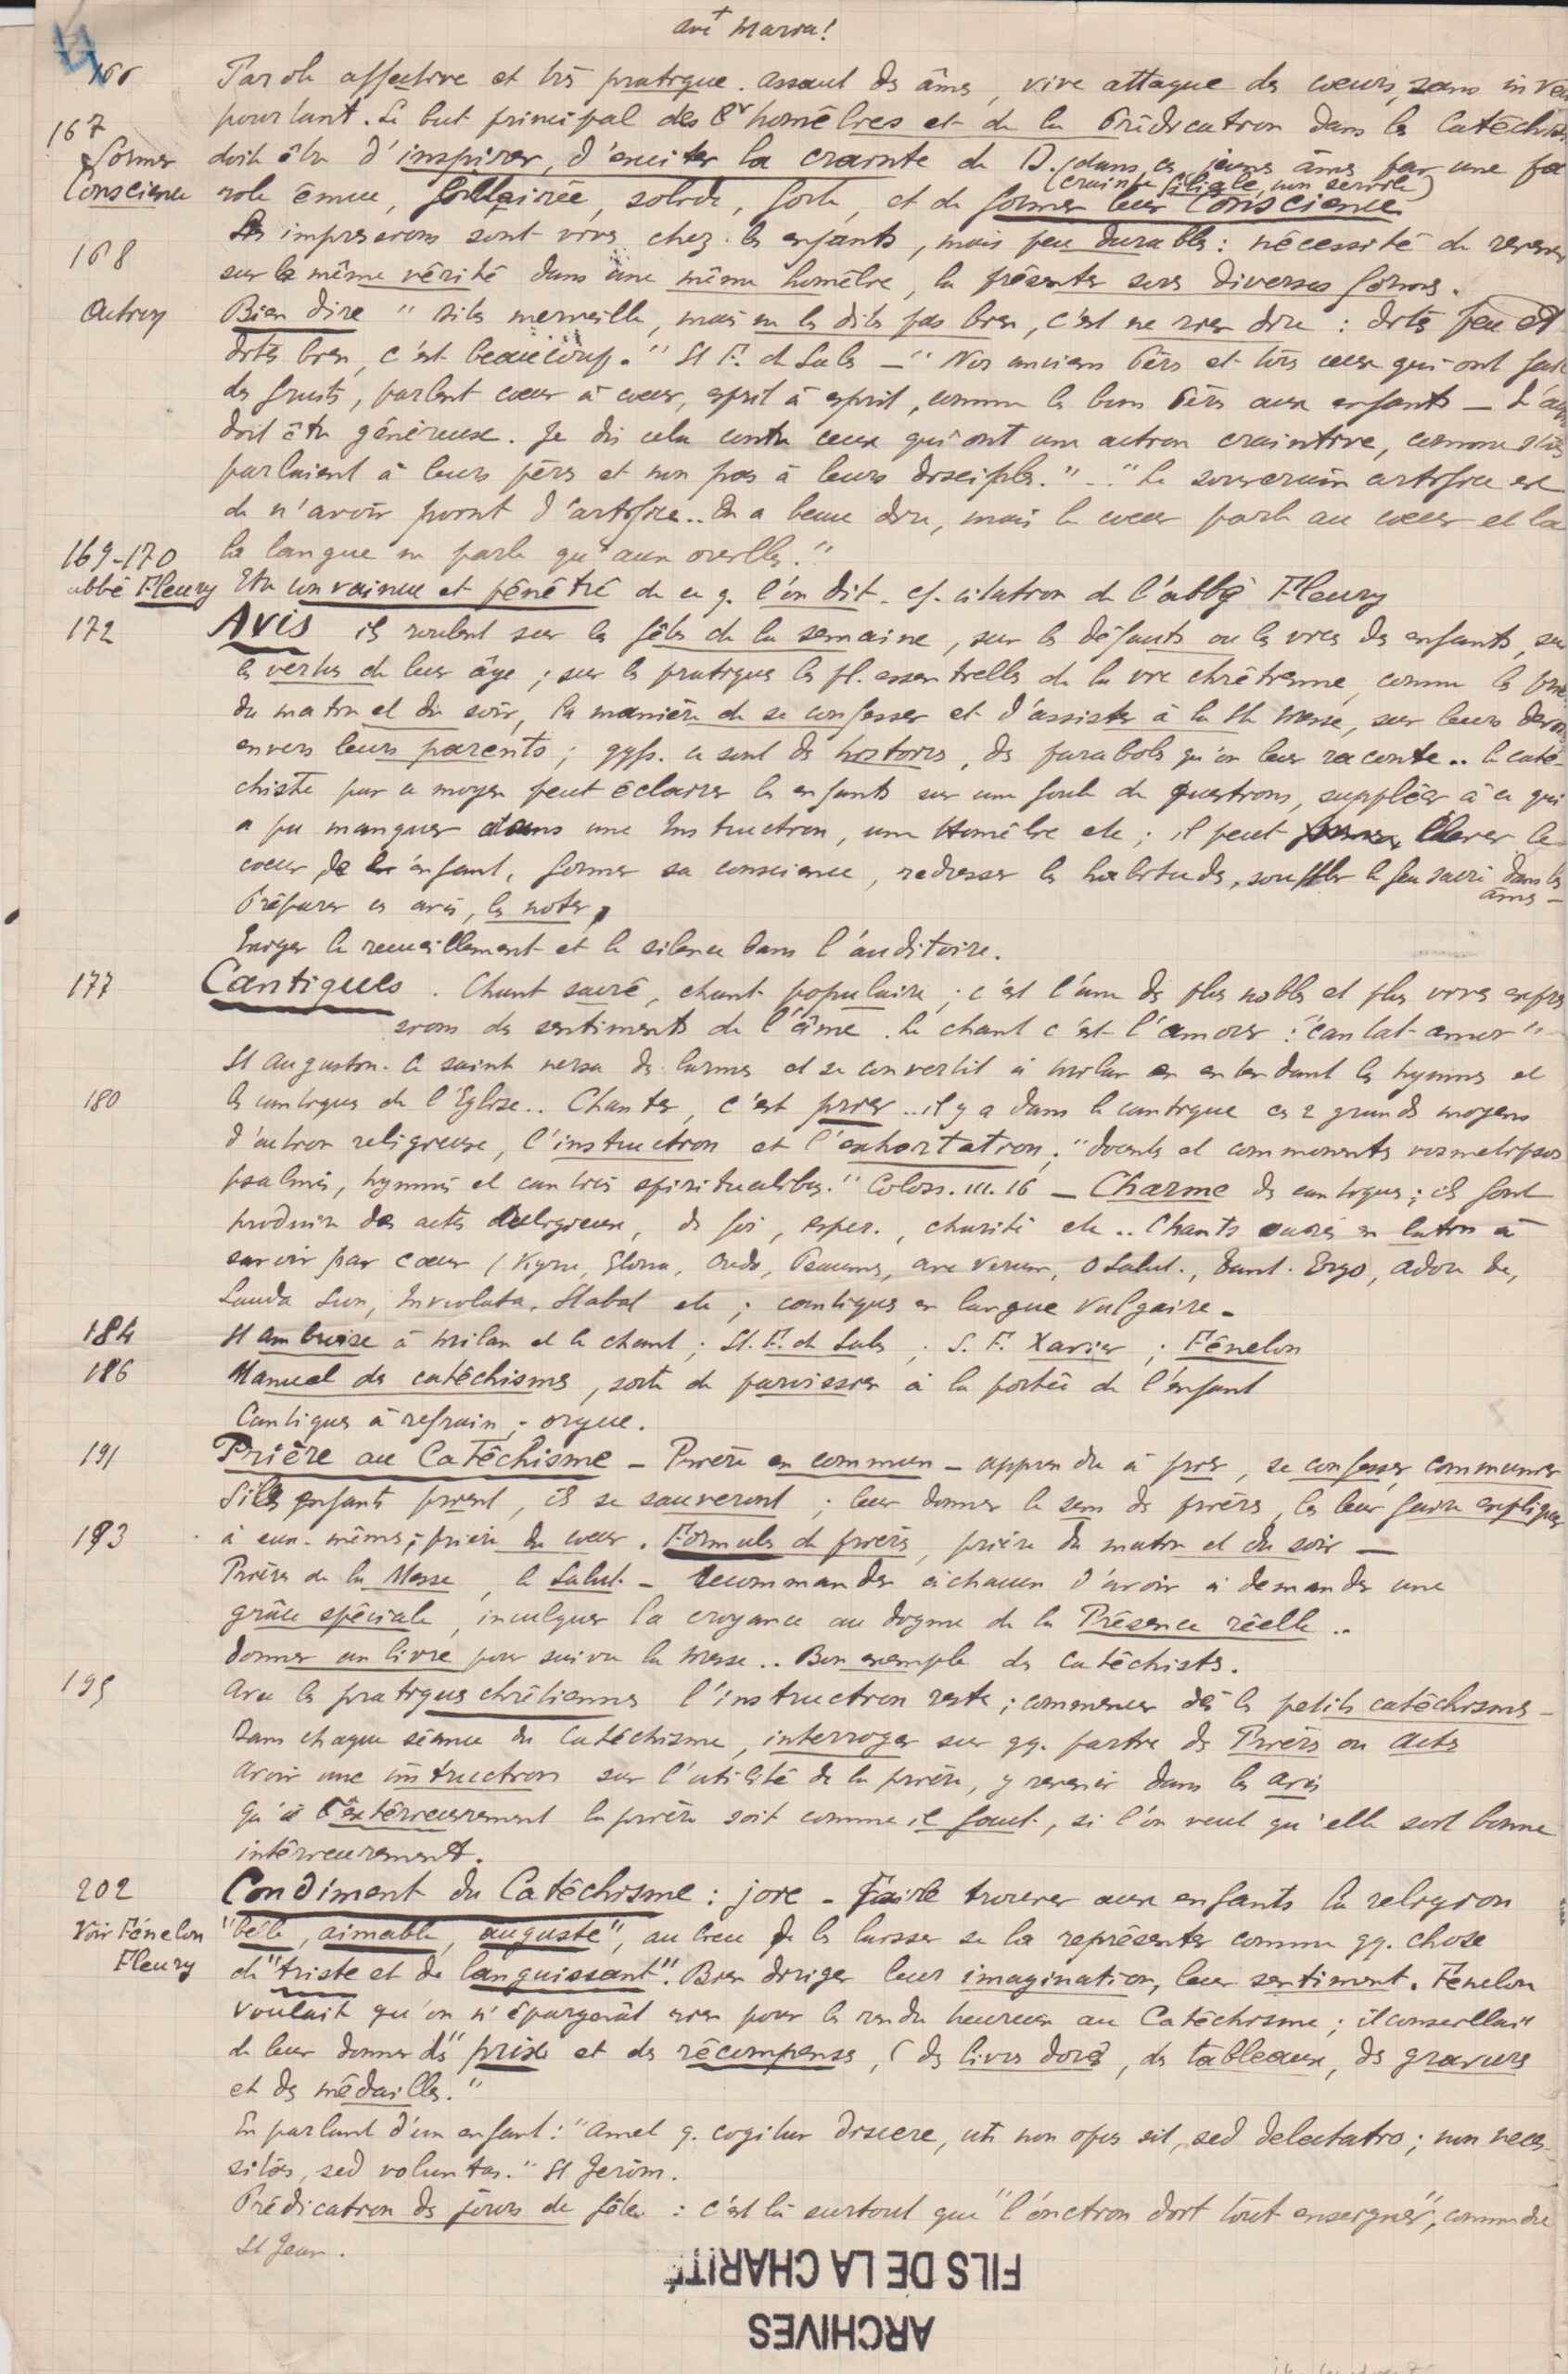 avé Maria!
4
166 Parole affective et très pratique. assaut des âmes, vive attaque des coeurs, sans
167 pourtant. Le but principal des homélies et de la Prédication dans les Catéchismes
former doit être d'inspirer, d'exciter la crainte de D. dans ces jeunes âmes par une pa
(crainte filiale, non servile)
Conscience role émue, éclairée, solide, forte, et de former leur Conscience
168 Les impressions sont vives chez les enfants, mais peu durables : nécessité de revenir
sur la même vérité dans une même homélie, la présenter sous diverses formes.
Action Bien dire "dites merveille, mais ne les dites pas bien, c'est ne rien dire : dites peu et
dites bien, c'est beaucoup." St F. de Sales – "Nos anciens Pères et tous ceux qui ont fait
des fruits, parlent coeur à coeur, esprit à esprit, comme les bons Pères aux enfants – L'
doit être généreuse. Je dis cela contre ceux qui ont une action craintive, comme s'ils
parlaient à leurs pères et non pas à leurs disciples." – "Le souverain artifice est
de n'avoir point d'artifice.. On a beau dire, mais le coeur parle au coeur et la
169-170 la langue ne parle qu'aux oreilles."
abbé Fleury Etre convaincu et pénétré de ce q. l'on dit. cf. citation de l'abbé Fleury
172 Avis ils roulent sur les fêtes de la semaine, sur les défauts ou les vices des enfants, sur
les vertus de leur âge ; sur les pratiques les pl. essentielles de la vie chrétienne, comme les
du matin et du soir, la manière de se confesser et d'assister à la Ste Messe, sur leurs devoirs
envers leurs parents ; qqfs. ce sont des histoires, des paraboles qu'on leur raconte.. le caté-
chiste par ce moyen peut éclairer les enfants sur une foule de questions, suppléer à ce qui
a pu manquer dans une Instruction, une Homélie etc ; il peut élever le
coeur de l'enfant, former sa conscience, redresser les habitudes, souffler le feu sacré dans les
âmes –
Préparer ces avis, les noter,
Exiger le recueillement et le silence dans l'auditoire.
177 Cantiques. Chant sacré, chant populaire ; c'est l'une des plus nobles et plus vives expres
sions des sentiments de l'âme. Le chant c'est l'amour : "cantat amor"
St Augustin. Ce saint versa des larmes et se convertit à Milan en entendant les hymnes et
180 les cantiques de l'Eglise.. Chanter, c'est prier.. il y a dans le cantique ces 2 grands moyens
d'action religieuse, l'instruction et l'exhortation ; "docentes et commonentes vosmetipsos
psalmis, hymnis et canticis spiritualibus." Coloss. III. 16 – Charme des cantiques ; ils font
produire des actes religieux, de foi, esper., charité etc.. Chants sacrés en latin à
savoir par coeur (Kyrie, Gloria, Credo, Psaumes, ave Verum, O Salut., Tant. Ergo, adoro te,
Lauda Sion, Inviolata, Stabat etc ; cantiques en langue vulgaire.
184 St Ambroise à Milan et le chant ; St. F. de Sales ; S. F. Xavier ; Fénelon
186 Manuel des catéchismes, sorte de paroissien à la portée de l'enfant
Cantiques à refrain ; orgue.
191 Prière au Catéchisme – Prière en commun – apprendre à prier, se confesser, communier
Si les enfants prient, ils se sauveront ; leur donner le sens des prières, les leur faire expliquer
193 à eux-mêmes ; prière du coeur. Formules de prières, prière du matin et du soir –
Prières de la Messe, le Salut – Recommander à chacun d'avoir à demander une
grâce spéciale, inculquer la croyance au dogme de la Présence réelle..
donner un livre pour suivre la messe.. Bon exemple des catéchistes.
195 Avec les pratiques chrétiennes l'instruction reste ; commencer dès les petits catéchismes –
Dans chaque séance du Catéchisme, interroger sur qq. partie des Prières ou Actes
Avoir une instruction sur l'utilité de la prière, y revenir dans les avis
Qu'extérieurement la prière soit comme il faut, si l'on veut qu'elle soit bonne
intérieurement.
202 Condiment du Catéchisme : joie – Faire trouver aux enfants la religion
Voir Fénelon "belle, aimable, auguste", au lieu de les laisser se la représenter comme qq. chose
Fleury de "triste et de languissant". Bien diriger leur imagination, leur sentiment. Fénelon
voulait qu'on n'épargnât rien pour les rendre heureux au Catéchisme ; il conseillait
de leur donner des "prix et des récompenses, (des livres dorés, des tableaux, des gravures
et des médailles."
En parlant d'un enfant : "Amet q. cogitur discere, ut non opus sit, sed delectatio ; non neces
sitas, sed voluntas." St Jérôm.
Prédication des jours de fêtes : c'est là surtout que "l'onction doit tout enseigner", comme dit
St Jean.
FILS DE LA CHARITÉ
ARCHIVES